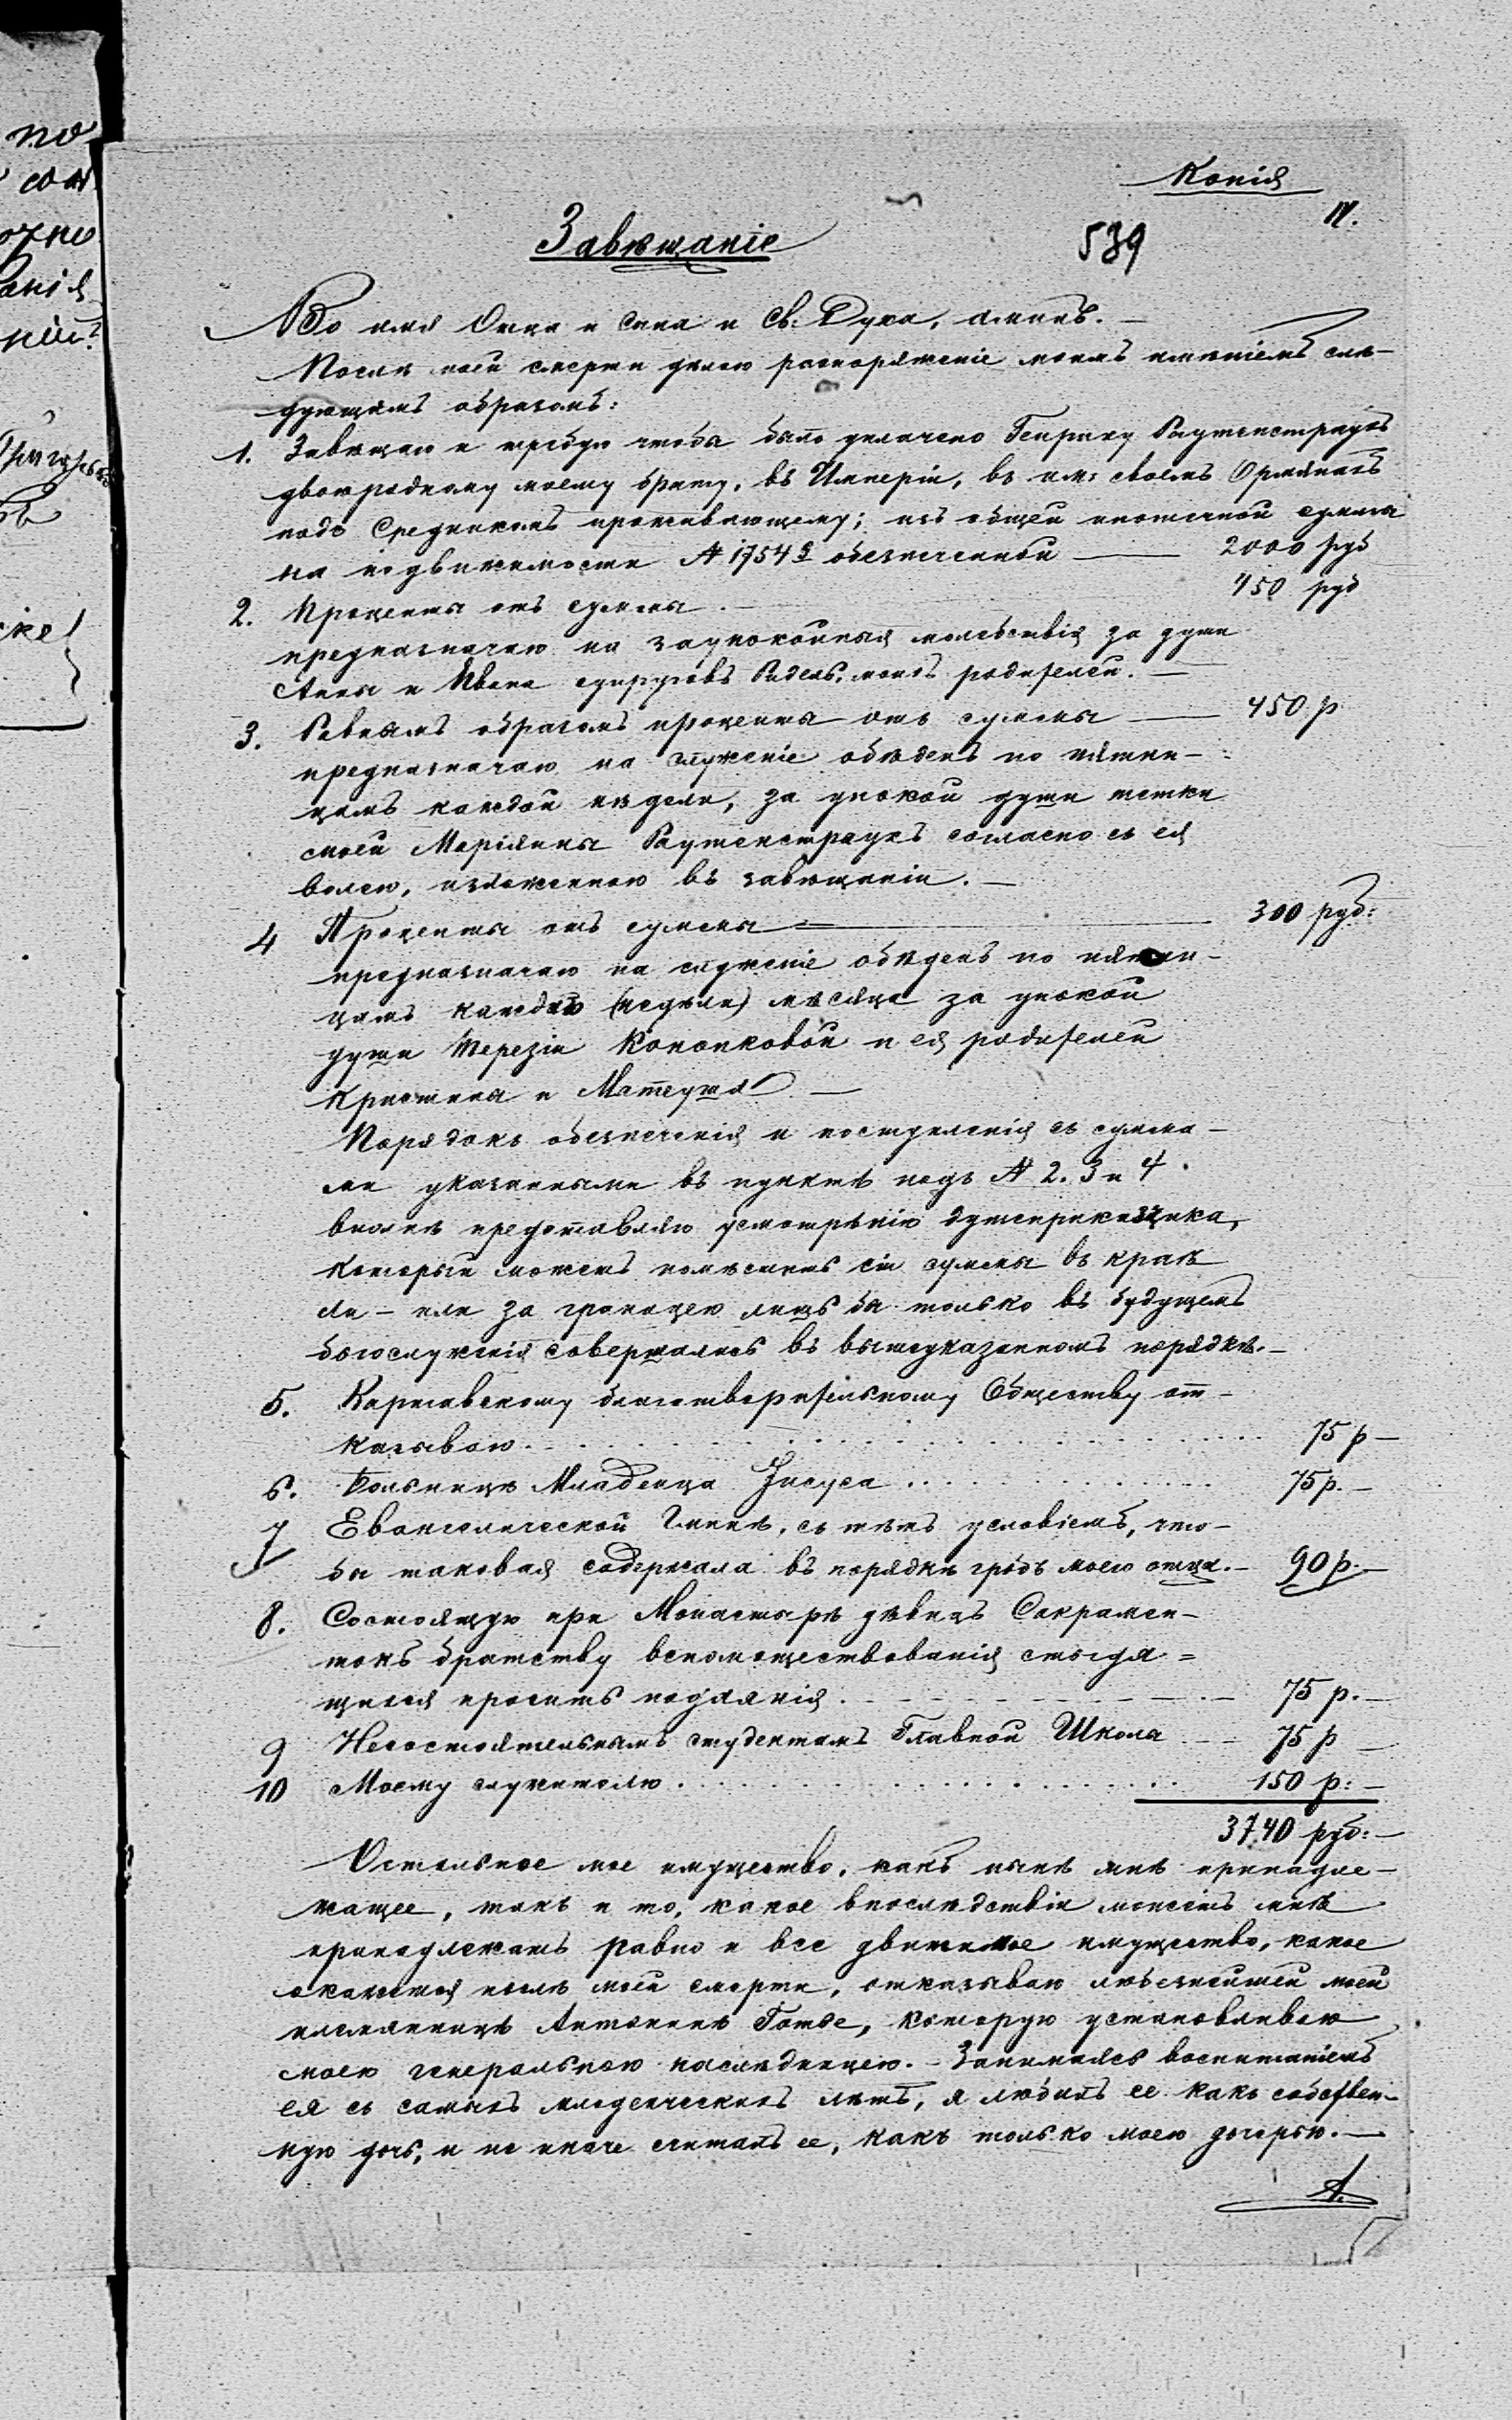 Копія
IV.
Завѣщаніе
539
Во имя Отца и Сына и Св: Духа, аминь. —
Послѣ моей смерти дѣлаю распоряженіе моимъ имѣніемъ слѣ-
дующимъ образомъ:
1. Завѣщаю и требую чтобы было уплачено Генриху Раутенстраухъ
двоюродному моему брату, въ Имперіи, въ им: своемъ
подъ проживающему; изъ общей ипотечной суммы
на недвижимости № 1754 обезпеченной — 2000 руб
2. Проценты отъ суммы . — 450 руб
предназначаю на заупокойныя молебствія за души
Анны и Ивана супруговъ моихъ родителей. —
3. Равнымъ образомъ проценты отъ суммы — 450 р
предназначаю на служеніе обѣденъ по пятни-
цамъ каждой недели, за упокой души тетки
моей Маріянны Раутенстраухъ согласно съ ея
волею, изложенною въ завѣщаніи. —
4 Проценты отъ суммы — 300 руб:
предназначаю на служеніе обѣденъ по пятни-
цамъ каждаго (недѣли) мѣсяца за упокой
души Терезіи Конопковой и ея родителей
Кристины и Матеуша —
Порядокъ обезпеченія и поступленія съ сумма-
ми указанными въ пунктѣ подъ № 2. 3 и 4
вполнѣ предоставляю усмотрѣнію душеприказчика,
который можетъ помѣстить сіи суммы въ краѣ
ли — или за границею лишь бы только въ будущемъ
богослуженія совершались въ вышеуказанномъ порядкѣ. —
5. Варшавскому благотворительному Обществу от-
казываю . . . . 75 р —
6. Больницѣ Младенца Іисуса . . . . 75 р. —
7 Евангелической Гминѣ, съ тѣмъ условіемъ, что-
бы таковая содержала въ порядкѣ гробъ моего отца. — 90 р. —
8. Состоящую при Монастырѣ дѣвицъ Сакрамен-
токъ братству вспомоществованія стыдя=
щихся просить подаянія . — 75 р. —
9 Несостоятельнымъ студентамъ Главной Школы — 75 р —
10 Моему служителю . . . . 150 р: —
3740 руб: —
Остальное мое имущество, какъ нынѣ мнѣ принадле-
жащее, такъ и то, какое впослѣдствіи можетъ мнѣ
принадлежать равно и все движимое имущество, какое
окажется послѣ моей смерти, отказываю любезнейшей моей
племянницѣ Антонинѣ, которую установливаю
моею генеральною наслѣдницею. — Занимаясь воспитаніемъ
ея съ самыхъ младенческихъ лѣтъ, я любилъ ее какъ собствен-
ную дочь, и не иначе считалъ ее, какъ только моею дочерью. —